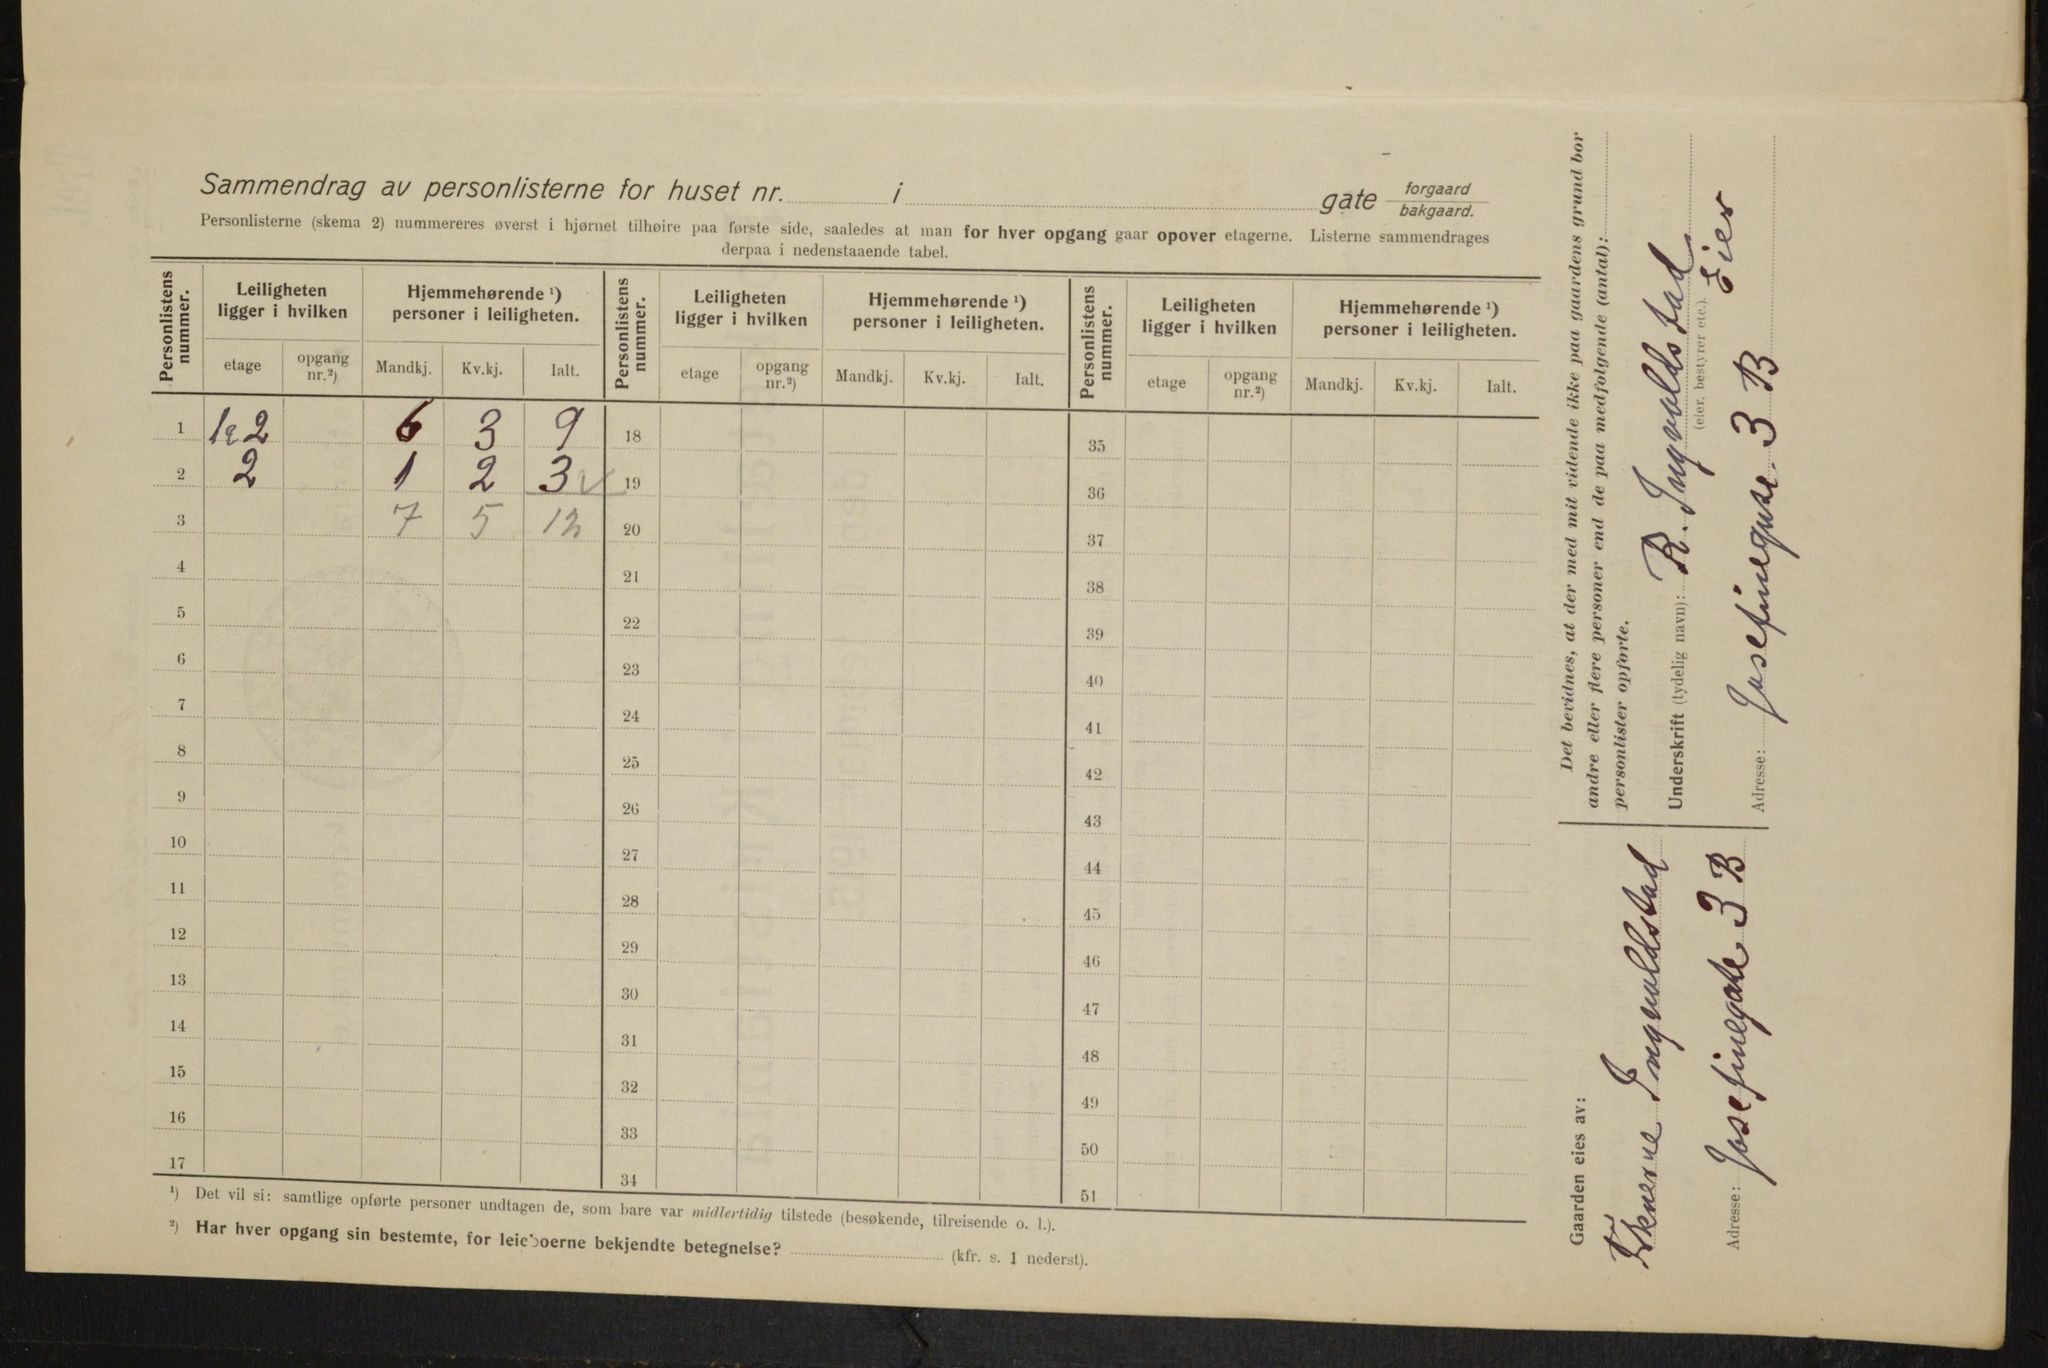 Sammendrag av personlisterne for huset nr. i gate forgaard
bakgaard.
Personlisterne (skema 2) nummereres øverst i hjørnet tilhøire paa første side, saaledes at man for hver opgang gaar opover etagerne. Listerne sammendrages
derpaa i nedenstaaende tabel.
Personlistens nummer. Leiligheten ligger i hvilken Hjemmehørende ¹) personer i leiligheten. Personlistens nummer. Leiligheten ligger i hvilken Hjemmehørende ¹) personer i leiligheten. Personlistens nummer. Leiligheten ligger i hvilken Hjemmehørende ¹) personer i leiligheten.
etage opgang nr.²) Mandkj. Kv.kj. Ialt. etage opgang nr.²) Mandkj. Kv.kj. Ialt. etage opgang nr.²) Mandkj. Kv.kj. Ialt.
1 2 6 3 9 18 35
2 2 1 2 3 19 36
3 7 5 12 20 37
4 21 38
5 22 39
6 23 40
7 24 41
8 25 42
9 26 43
10 27 44
11 28 45
12 29 46
13 30 47
14 31 48
15 32 49
16 33 50
17 34 51
¹) Det vil si: samtlige opførte personer undtagen de, som bare var midlertidig tilstede (besøkende, tilreisende o. l.).
²) Har hver opgang sin bestemte, for leieboerne bekjendte betegnelse? (kfr. s. 1 nederst).
Gaarden eies av:
Ingvoldstad
Adresse: Josefinegate 3 B
Det bevidnes, at der med mit vidende ikke paa gaardens grund bor
andre eller flere personer end de paa medfølgende (antal):
personlister opførte.
Underskrift (tydelig navn): R. Ingvoldstad
(eier, bestyrer etc.). Eier
Adresse: Josefinegate 3 B